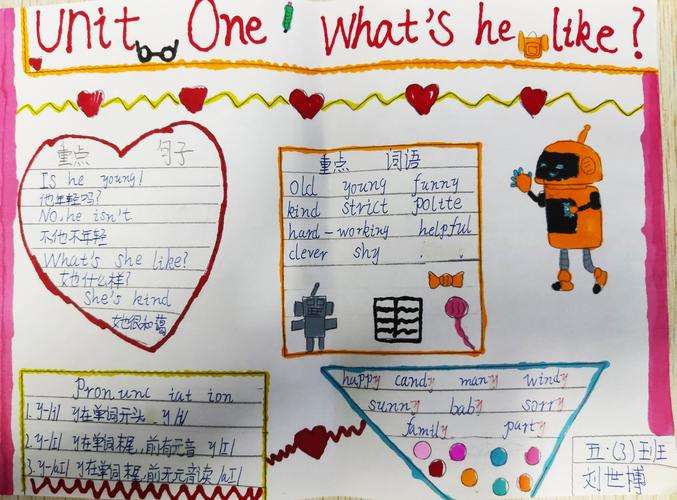 Unit One What's he like?
重点 句子
Is he young!
他年轻吗?
No, he isn't
不,他不年轻
What's she like?
她什么样?
She's kind
她很和蔼
重点 词语
Old young funny
kind strict polite
hard-working helpful
clever shy . .
Pronunciation
1. y-/j/ y在单词开头 y /j/
2. y-/ɪ/ y在单词末尾,前有元音 y /ɪ/
3. y-/aɪ/ y在单词末尾,前无元音读 /aɪ/
happy candy many windy
sunny baby sorry
family party
五.(3)班
刘世博